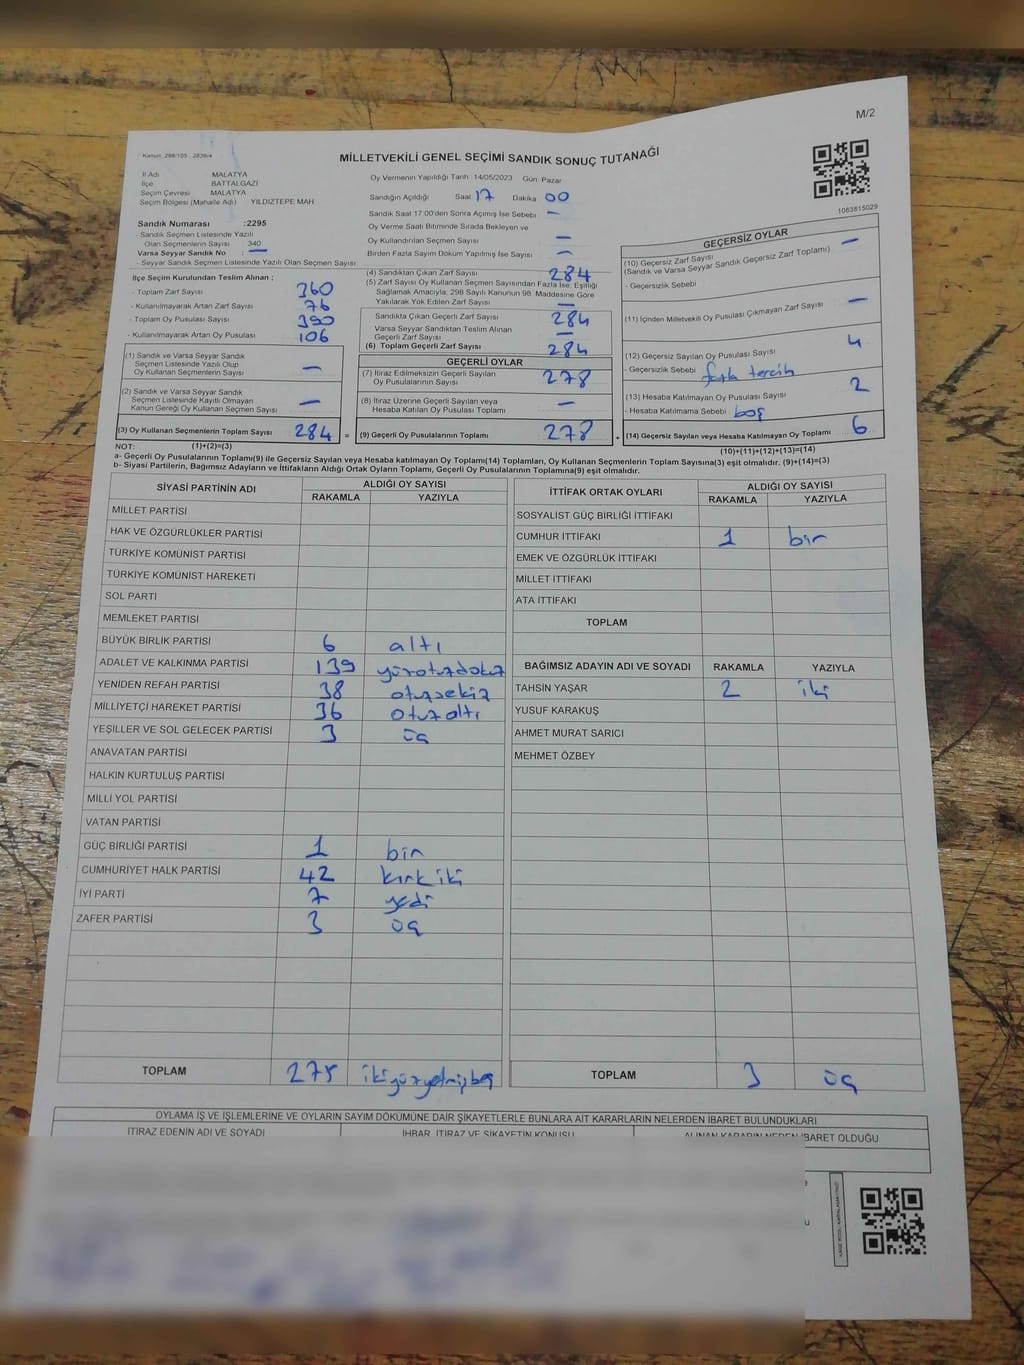 M/2
Kanun: 298/105 , 2839/4
MİLLETVEKİLİ GENEL SEÇİMİ SANDIK SONUÇ TUTANAĞI
1083815029
İl Adı MALATYA
İlçe BATTALGAZİ
Seçim Çevresi MALATYA
Seçim Bölgesi (Mahalle Adı) YILDIZTEPE MAH
Sandık Numarası :2295
- Sandık Seçmen Listesinde Yazılı
Olan Seçmenlerin Sayısı 340
Varsa Seyyar Sandık No : —
- Seyyar Sandık Seçmen Listesinde Yazılı Olan Seçmen Sayısı
Oy Vermenin Yapıldığı Tarih :14/05/2023 Gün: Pazar
Sandığın Açıldığı Saat 17 Dakika 00
Sandık Saat 17:00'den Sonra Açımış İse Sebebi —
Oy Verme Saati Bitiminde Sırada Bekleyen ve
Oy Kullandırılan Seçmen Sayısı —
Birden Fazla Sayım Döküm Yapılmış İse Sayısı —
İlçe Seçim Kurulundan Teslim Alınan ;
- Toplam Zarf Sayısı 360
- Kullanılmayarak Artan Zarf Sayısı 76
- Toplam Oy Pusulası Sayısı 390
- Kullanılmayarak Artan Oy Pusulası 106
(1) Sandık ve Varsa Seyyar Sandık
Seçmen Listesinde Yazılı Olup
Oy Kullanan Seçmenlerin Sayısı —
(2) Sandık ve Varsa Seyyar Sandık
Seçmen Listesinde Kayıtlı Olmayan
Kanun Gereği Oy Kullanan Seçmen Sayısı —
(3) Oy Kullanan Seçmenlerin Toplam Sayısı 284 =
(4) Sandıktan Çıkan Zarf Sayısı 284
(5) Zarf Sayısı Oy Kullanan Seçmen Sayısından Fazla İse, Eşitliği
Sağlamak Amacıyla, 298 Sayılı Kanunun 98. Maddesine Göre
Yakılarak Yok Edilen Zarf Sayısı —
Sandıkta Çıkan Geçerli Zarf Sayısı 284
Varsa Seyyar Sandıktan Teslim Alınan
Geçerli Zarf Sayısı —
(6) Toplam Geçerli Zarf Sayısı 284
GEÇERLİ OYLAR
(7) İtiraz Edilmeksizin Geçerli Sayılan
Oy Pusulalarının Sayısı 278
(8) İtiraz Üzerine Geçerli Sayılan veya
Hesaba Katılan Oy Pusulası Toplamı —
(9) Geçerli Oy Pusulalarının Toplamı 278 +
GEÇERSİZ OYLAR
(10) Geçersiz Zarf Sayısı —
(Sandık ve Varsa Seyyar Sandık Geçersiz Zarf Toplamı)
- Geçersizlik Sebebi
(11) İçinden Milletvekili Oy Pusulası Çıkmayan Zarf Sayısı —
(12) Geçersiz Sayılan Oy Pusulası Sayısı 4
- Geçersizlik Sebebi fazla tercih
(13) Hesaba Katılmayan Oy Pusulası Sayısı 2
- Hesaba Katılmama Sebebi boş
(14) Geçersiz Sayılan veya Hesaba Katılmayan Oy Toplamı 6
NOT: (1)+(2)=(3)
(10)+(11)+(12)+(13)=(14)
a- Geçerli Oy Pusulalarının Toplamı(9) ile Geçersiz Sayılan veya Hesaba katılmayan Oy Toplamı(14) Toplamları, Oy Kullanan Seçmenlerin Toplam Sayısına(3) eşit olmalıdır. (9)+(14)=(3)
b- Siyasi Partilerin, Bağımsız Adayların ve İttifakların Aldığı Ortak Oyların Toplamı, Geçerli Oy Pusulalarının Toplamına(9) eşit olmalıdır.
SİYASİ PARTİNİN ADI ALDIĞI OY SAYISI
RAKAMLA YAZIYLA
MİLLET PARTİSİ
HAK VE ÖZGÜRLÜKLER PARTİSİ
TÜRKİYE KOMÜNİST PARTİSİ
TÜRKİYE KOMÜNİST HAREKETİ
SOL PARTİ
MEMLEKET PARTİSİ
BÜYÜK BİRLİK PARTİSİ 6 altı
ADALET VE KALKINMA PARTİSİ 139 yüzotuzdokuz
YENİDEN REFAH PARTİSİ 38 otuzsekiz
MİLLİYETÇİ HAREKET PARTİSİ 36 otuzaltı
YEŞİLLER VE SOL GELECEK PARTİSİ 3 üç
ANAVATAN PARTİSİ
HALKIN KURTULUŞ PARTİSİ
MİLLİ YOL PARTİSİ
VATAN PARTİSİ
GÜÇ BİRLİĞİ PARTİSİ 1 bir
CUMHURİYET HALK PARTİSİ 42 kırkiki
İYİ PARTİ 7 yedi
ZAFER PARTİSİ 3 üç
TOPLAM 275 ikiyüzyetmişbeş
İTTİFAK ORTAK OYLARI ALDIĞI OY SAYISI
RAKAMLA YAZIYLA
SOSYALİST GÜÇ BİRLİĞİ İTTİFAKI
CUMHUR İTTİFAKI 1 bir
EMEK VE ÖZGÜRLÜK İTTİFAKI
MİLLET İTTİFAKI
ATA İTTİFAKI
TOPLAM
BAĞIMSIZ ADAYIN ADI VE SOYADI RAKAMLA YAZIYLA
TAHSİN YAŞAR 2 iki
YUSUF KARAKUŞ
AHMET MURAT SARICI
MEHMET ÖZBEY
TOPLAM 3 üç
OYLAMA İŞ VE İŞLEMLERİNE VE OYLARIN SAYIM DÖKÜMÜNE DAİR ŞİKAYETLERLE BUNLARA AİT KARARLARIN NELERDEN İBARET BULUNDUKLARI
İTİRAZ EDENİN ADI VE SOYADI İHBAR, İTİRAZ VE ŞİKAYETİN KONUSU ALINAN KARARIN NEDEN İBARET OLDUĞU